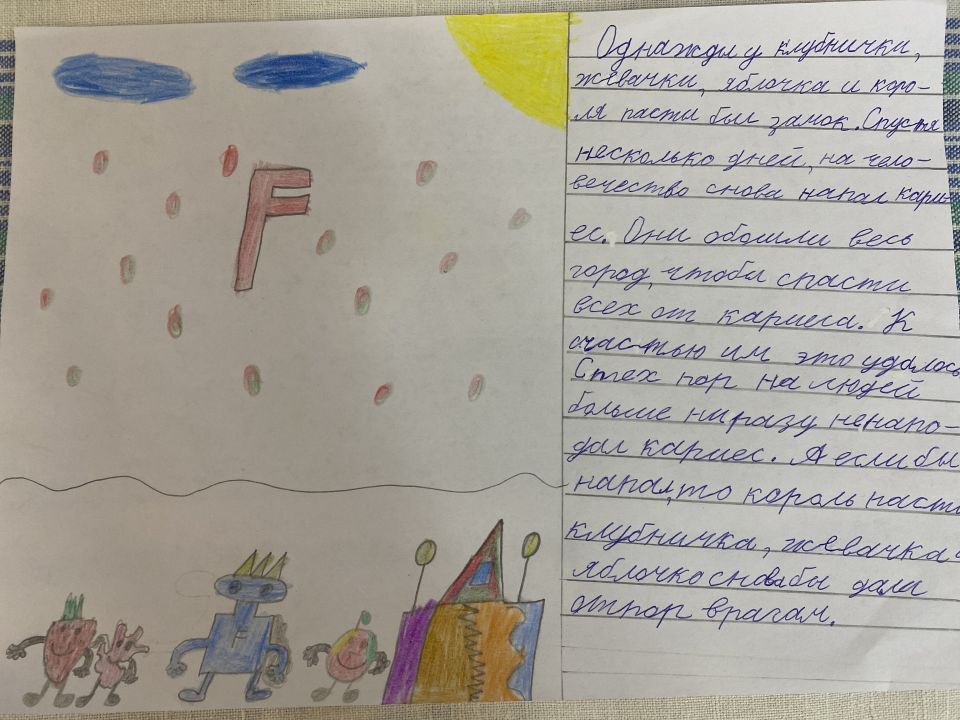 F
Однажды у клубнички,
жевачки, яблочка и коро-
ля пасты был замок. Спустя
несколько дней, на чело-
вечество снова напал кари-
ес. Они обошли весь
город, чтобы спасти
всех от кариеса. К
счастью им это удалось
Стех пор на людей
больше ниразу ненапо-
дал кариес. А если бы
напал, то король пасты
клубничка, жевачка и
яблочко снова бы дали
отпор врагам.